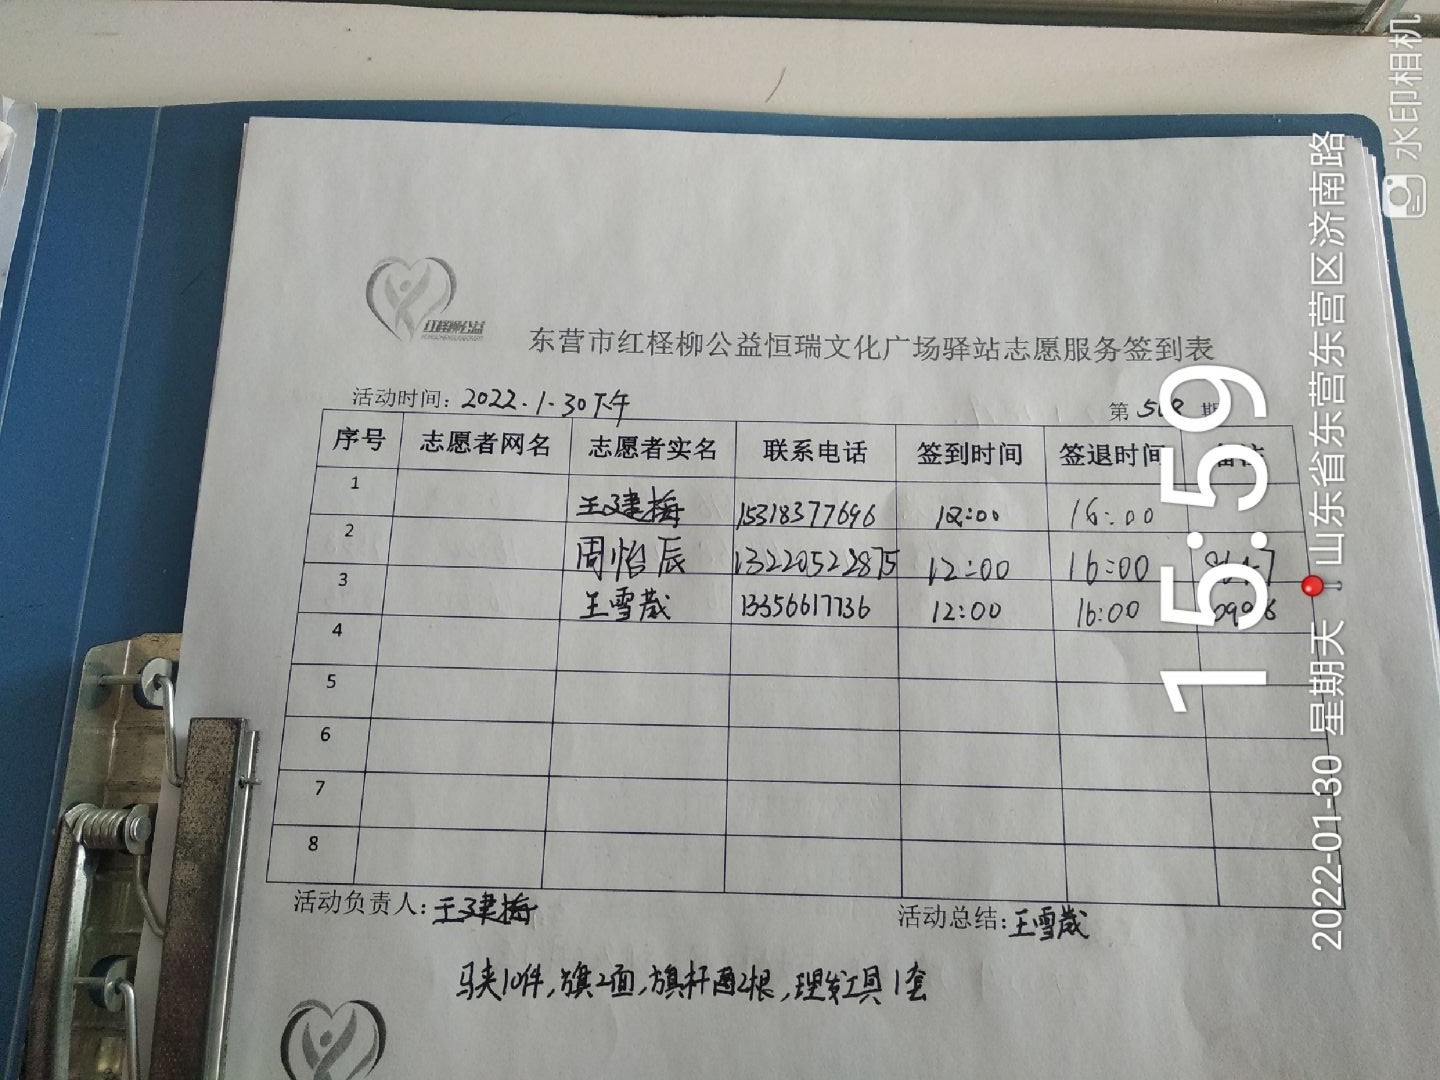 红柽柳公益
东营市红柽柳公益恒瑞文化广场驿站志愿服务签到表
活动时间：2022.1.30下午 第 期
序号 志愿者网名 志愿者实名 联系电话 签到时间 签退时间 备注
1 王建梅 15318377696 12:00 16:00
2 周怡辰 13220522875 12:00 16:00
3 王雪葳 13356617736 12:00 16:00
4
5
6
7
8
活动负责人：王建梅 活动总结：王雪葳
马夹10件，旗2面，旗杆2根，理发工具1套
15:59
2022-01-30 星期天 山东省东营东营区济南路
水印相机